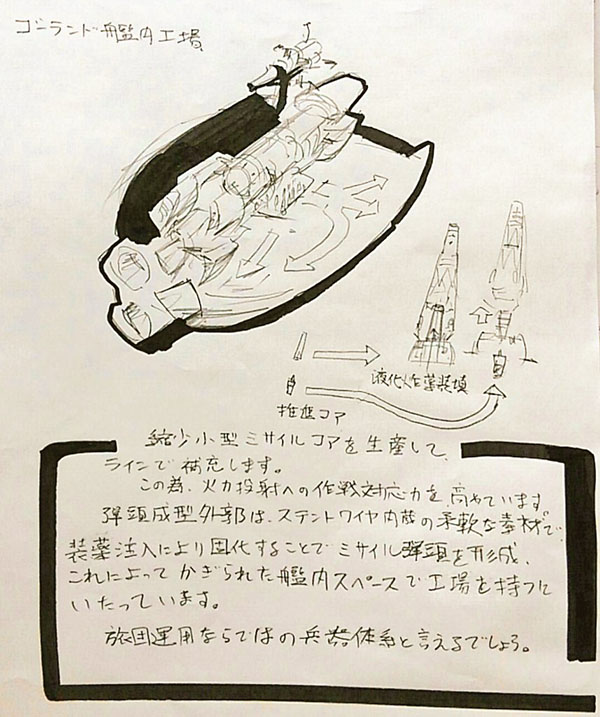 ゴランド艦内工場
液化炸薬装填
推進コア
縮少小型ミサイルコアを生産して、
ラインで補充します。
この為、火力投射への作戦対応力を高めています。
弾頭成型外部は、ステントワイヤ内蔵の柔軟な素材で、
装薬注入により固化することでミサイル弾頭を形成、
これによってかぎられた艦内スペースで工場を持つに
いたっています。
旅団運用ならではの兵器体系と言えるでしょう。